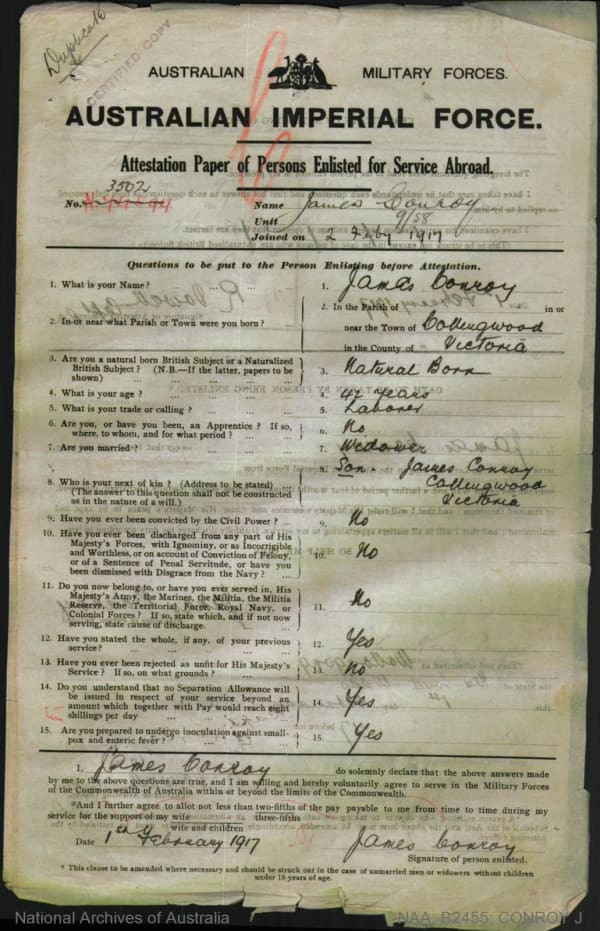 Duplicate
CERTIFIED COPY
AUSTRALIAN MILITARY FORCES.
AUSTRALIAN IMPERIAL FORCE.
Attestation Paper of Persons Enlisted for Service Abroad.
3502
No. Name James Conroy
Unit 9/58
Joined on 2 Feby 1917
Questions to be put to the Person Enlisting before Attestation.
1. What is your Name? ... ... 1. James Conroy
2. In or near what Parish or Town were you born? ... 2. In the Parish of in or
near the Town of Collingwood
in the County of Victoria
3. Are you a natural born British Subject or a Naturalized
British Subject? (N.B.—If the latter, papers to be
shown) ... ... 3. Natural Born
4. What is your age? ... ... 4. 42 years
5. What is your trade or calling? ... ... 5. Laborer
6. Are you, or have you been, an Apprentice? If so,
where, to whom, and for what period? ... ... 6. No
7. Are you married? ... ... 7. Widower
8. Who is your next of kin? (Address to be stated) ... 8. Son. James Conroy
(The answer to this question shall not be construed Collingwood
as in the nature of a will.) Victoria
9. Have you ever been convicted by the Civil Power? ... 9. No
10. Have you ever been discharged from any part of His
Majesty's Forces, with Ignominy, or as Incorrigible
and Worthless, or on account of Conviction of Felony, 10. No
or of a Sentence of Penal Servitude, or have you
been dismissed with Disgrace from the Navy? ...
11. Do you now belong to, or have you ever served in, His
Majesty's Army, the Marines, the Militia, the Militia
Reserve, the Territorial Force, Royal Navy, or 11. No
Colonial Forces? If so, state which, and if not now
serving, state cause of discharge.
12. Have you stated the whole, if any, of your previous
service? ... ... 12. Yes
13. Have you ever been rejected as unfit for His Majesty's
Service? If so, on what grounds? ... 13. No
14. Do you understand that no Separation Allowance will
be issued in respect of your service beyond an
amount which together with Pay would reach eight 14. Yes
shillings per day ... ...
15. Are you prepared to undergo inoculation against small-
pox and enteric fever? ... ... 15. Yes
I, James Conroy do solemnly declare that the above answers made
by me to the above questions are true, and I am willing and hereby voluntarily agree to serve in the Military Forces
of the Commonwealth of Australia within or beyond the limits of the Commonwealth.
*And I further agree to allot not less than two-fifths of the pay payable to me from time to time during my
three-fifths
service for the support of my wife
wife and children
Date 1st February 1917 James Conroy
Signature of person enlisted.
* This clause to be amended where necessary and should be struck out in the case of unmarried men or widowers without children
under 18 years of age.
National Archives of Australia NAA: B2455, CONROY J